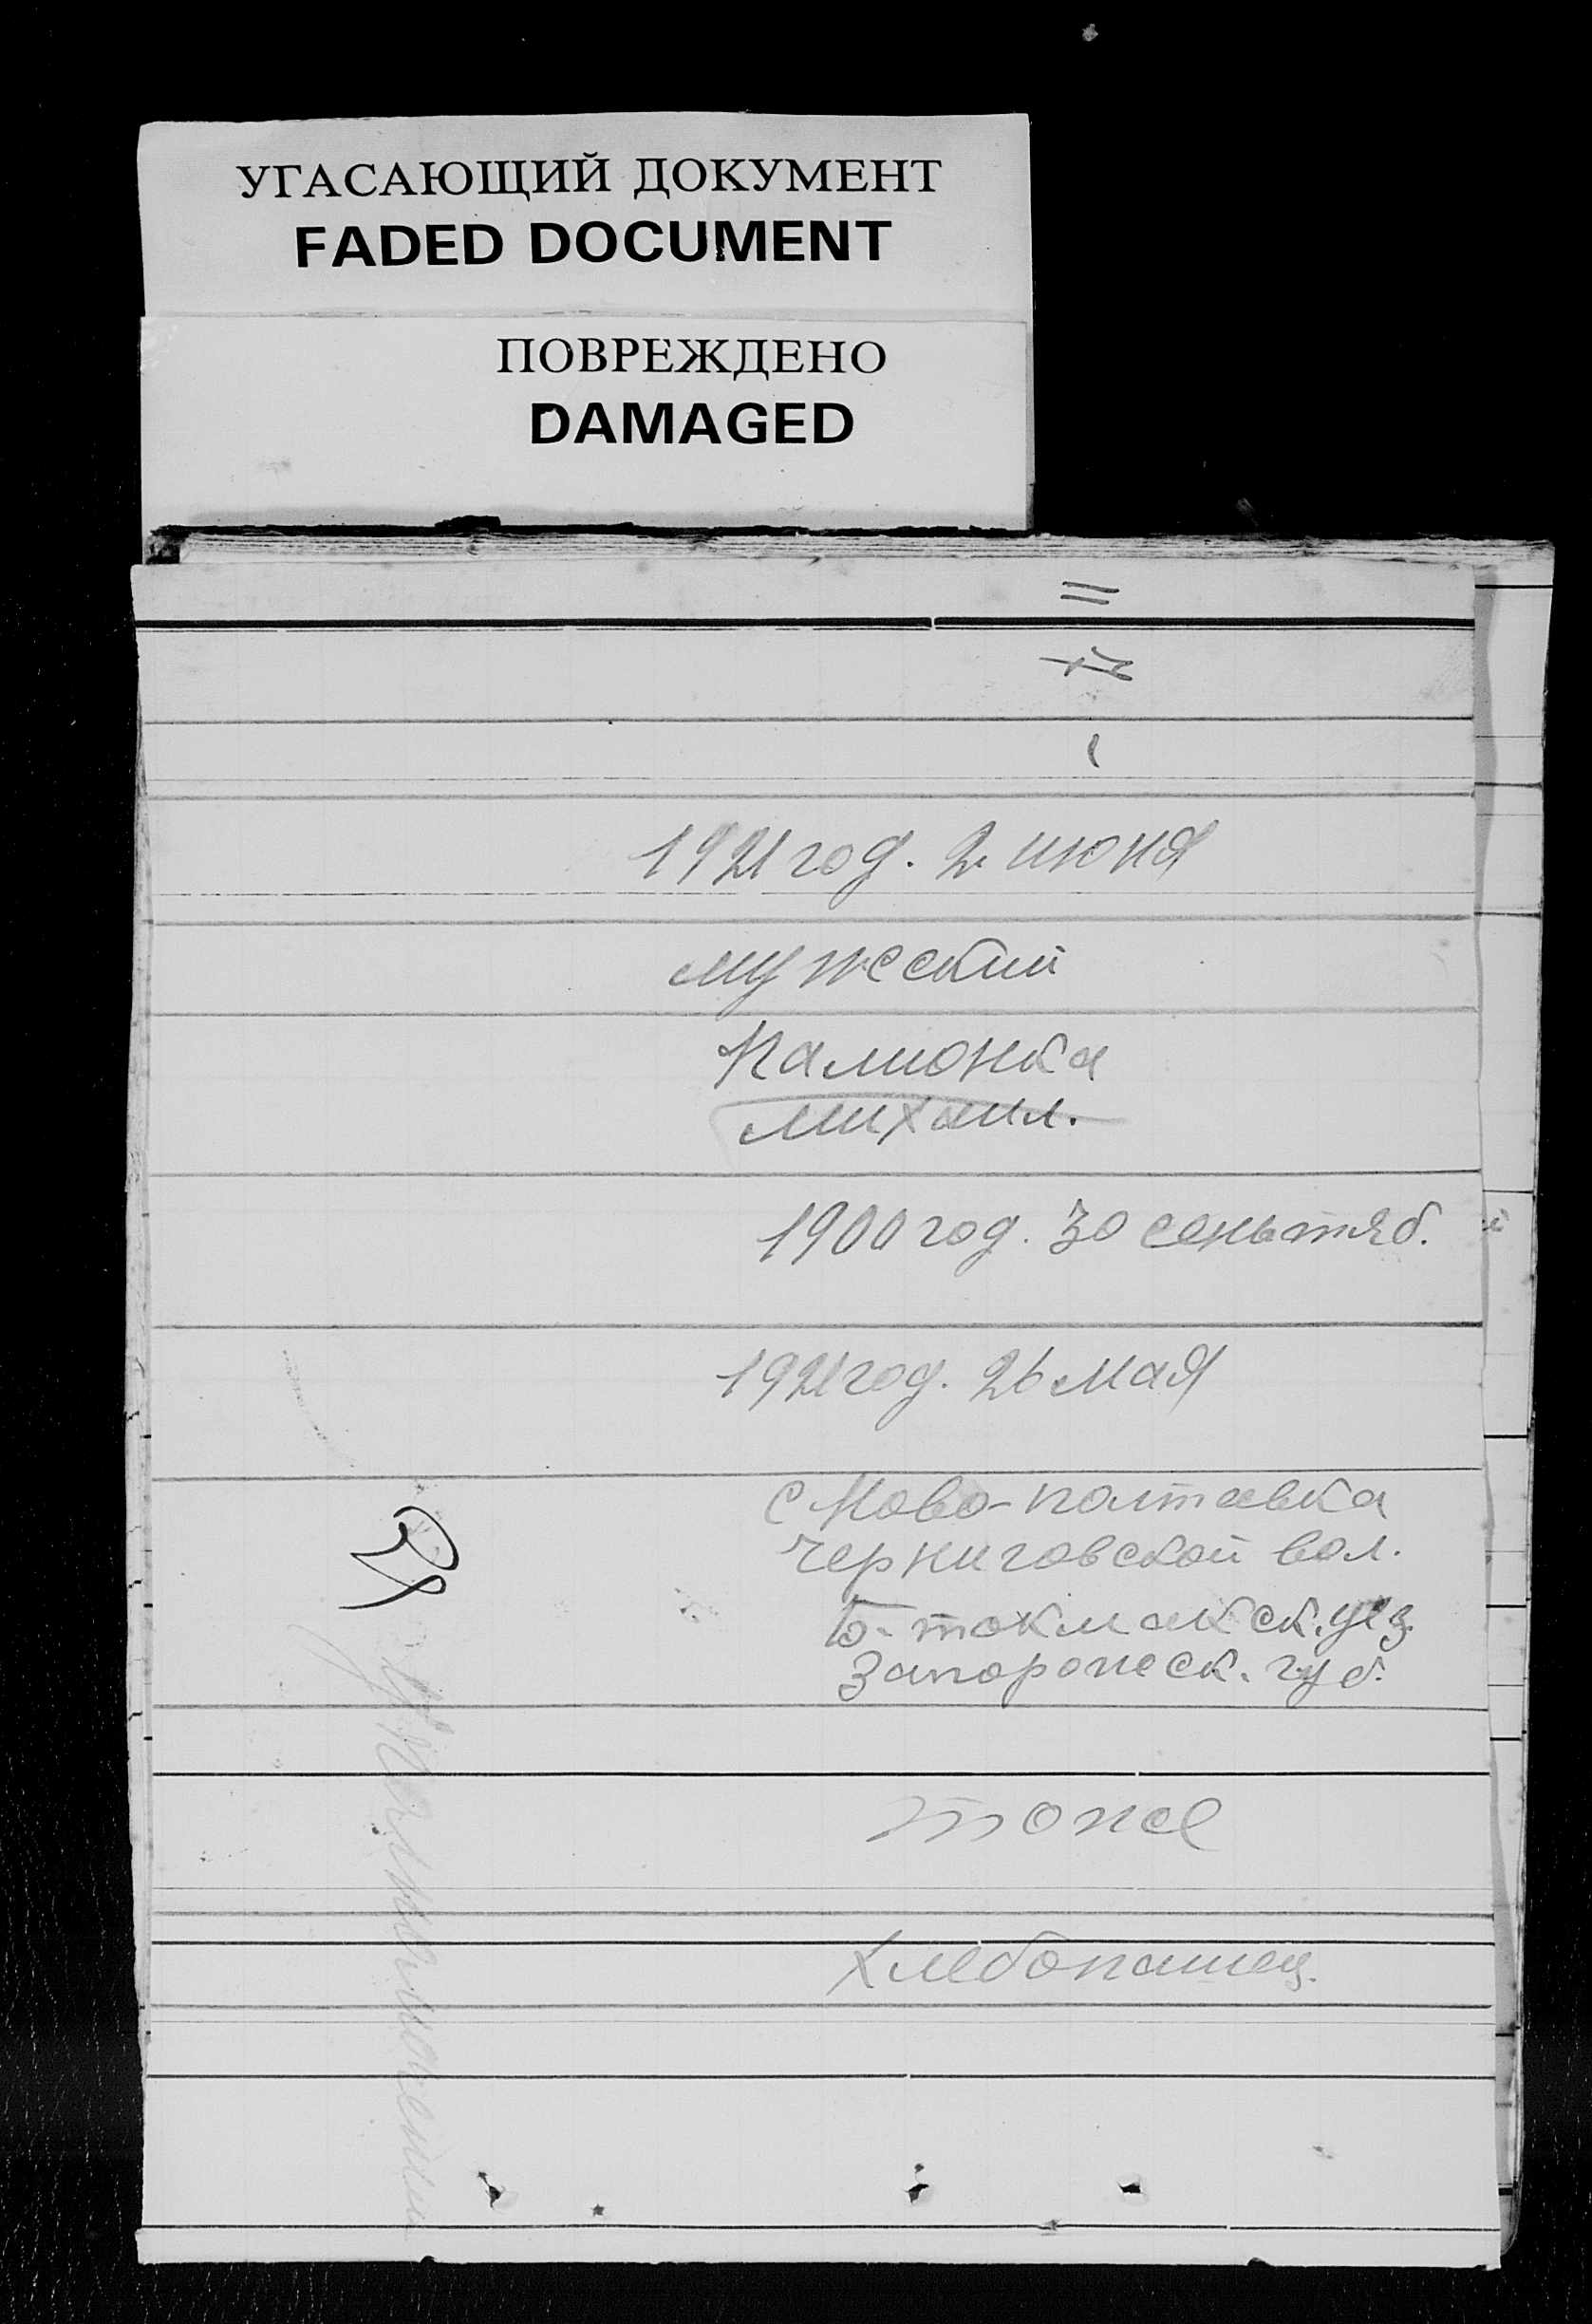 УГАСАЮЩИЙ ДОКУМЕНТ
FADED DOCUMENT
ПОВРЕЖДЕНО
DAMAGED
1921 год. 2 июня
мужеский
Палионка
Михаил.
1900 год. 30 сеньтяб.
1921 год. 26 мая
с Ново-полтавка
Черниговской вол.
Б-токмакск. уез.
Запорожск. губ.
тоже
Хлебопашец.